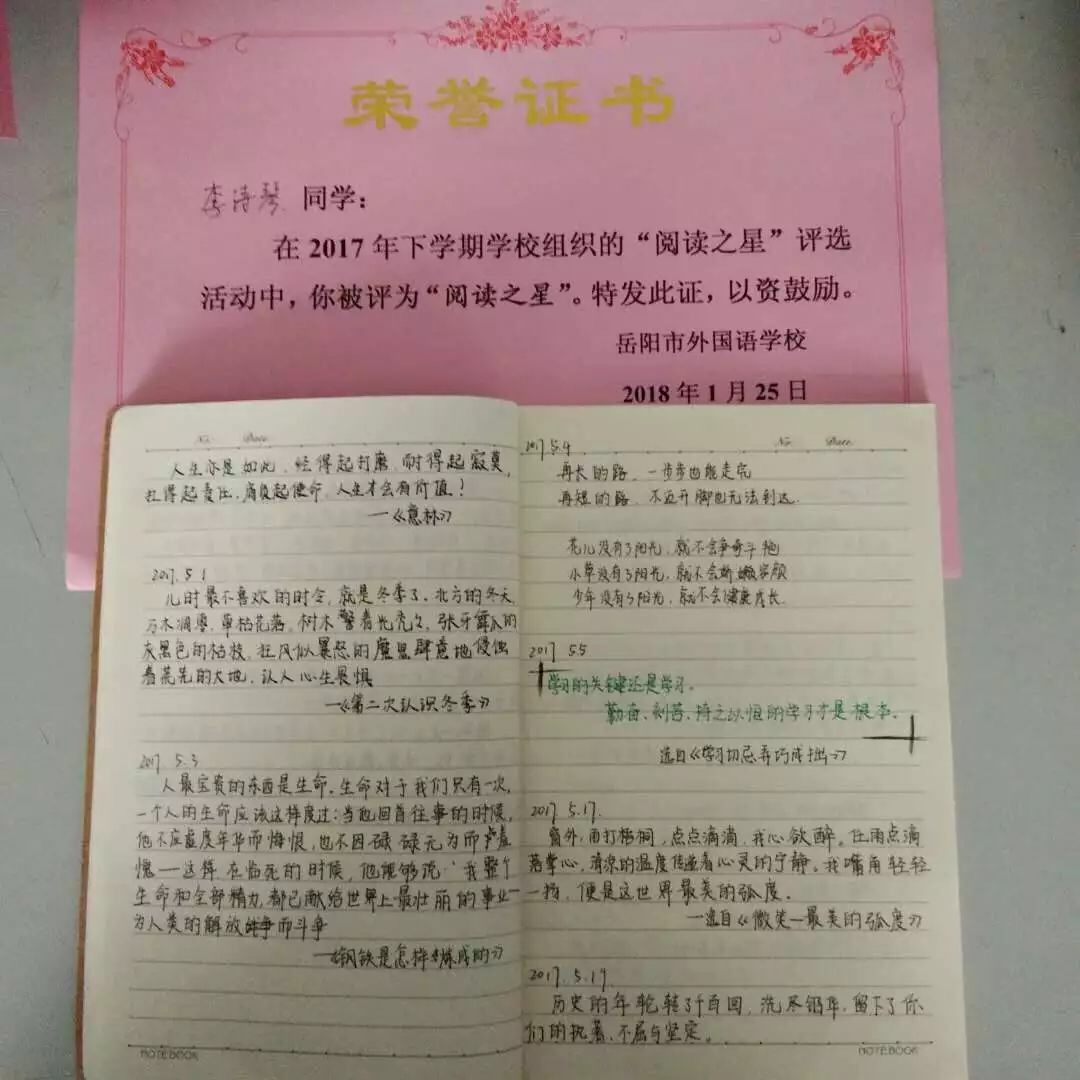 荣誉证书
李诗琴 同学：
在 2017 年下学期学校组织的“阅读之星”评选
活动中，你被评为“阅读之星”。特发此证，以资鼓励。
岳阳市外国语学校
2018 年 1 月 25 日
No. Date.
人生亦是如此，经得起打磨，耐得起寂寞，
扛得起责任，肩负起使命，人生才会有价值！
—《意林》
2017.5.1
儿时最不喜欢的时令，就是冬季了。北方的冬天，
万木凋零，草枯花落。树木警着光秃秃，张牙舞爪的
灰黑色的枯枝，狂风似暴怒的魔鬼肆意地侵蚀
着荒芜的大地，让人心生畏惧
—《第二次认识冬季》
2017.5.3
人最宝贵的东西是生命，生命对于我们只有一次，
一个人的生命应该这样度过：当他回首往事的时候，
他不应虚度年华而悔恨，也不因碌碌无为而羞
愧—这样，在临死的时候，他能够说：我整个
生命和全部精力，都已献给世界上最壮丽的事业—
为人类的解放而斗争
—《钢铁是怎样炼成的》
NOTEBOOK
2017 5.4
No. Date.
再长的路，一步步也能走完
再短的路，不迈开脚也无法到达.
花儿没有了阳光，就不会争奇斗艳
小草没有了阳光，就不会娇嫩容颜
少年没有了阳光，就不会健康成长.
2017 5.5
学习的关键还是学习。
勤奋、刻苦、持之以恒的学习才是根本。
选自《学习切忌弄巧成拙》
2017.5.17.
窗外，雨打梧桐，点点滴滴，我心欲醉。任雨点滴
落掌心，清凉的温度传递着心灵的宁静。我嘴角轻轻
一扬，便是这世界最美的弧度。
—选自《微笑—最美的弧度》
2017.5.19.
历史的年轮转了千百回，洗尽铅华，留下了你
们的执著、不屈与坚定。
NOTEBOOK